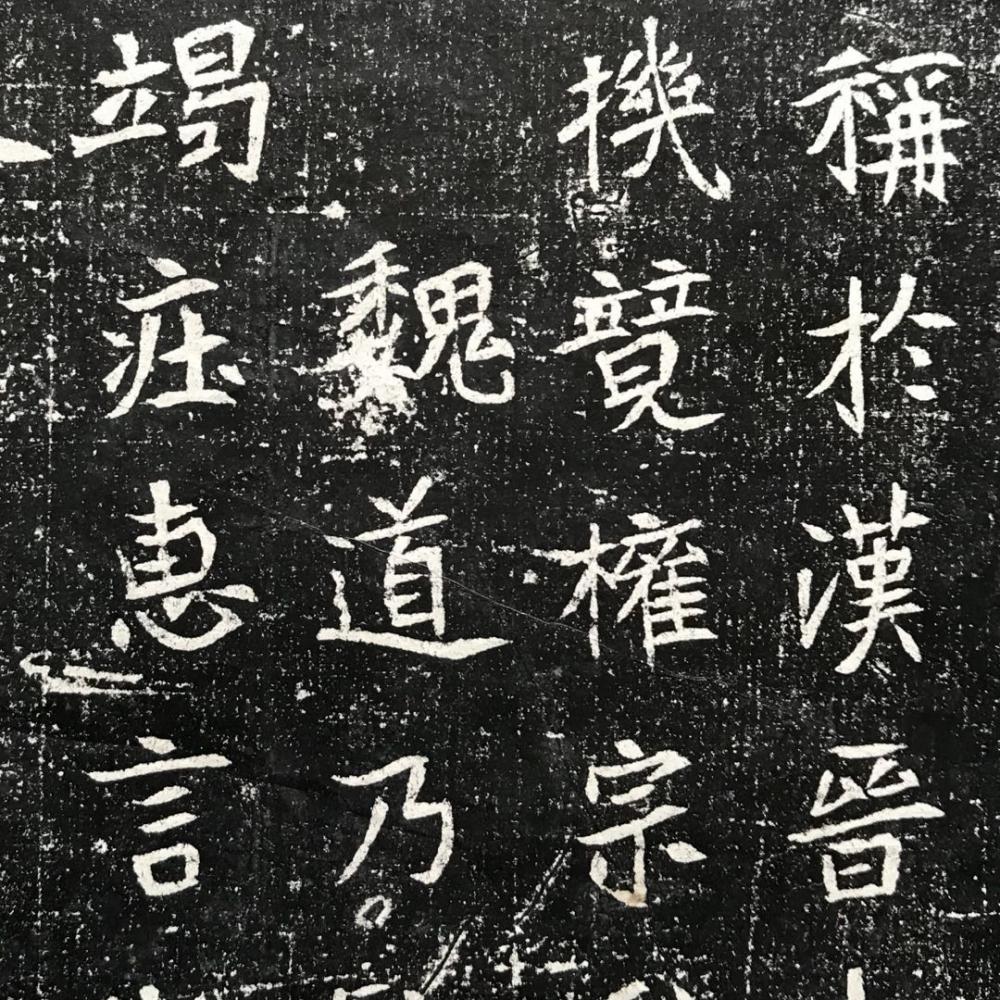 稱於漢晉
機競權宗
魏道乃
竭庄惠言